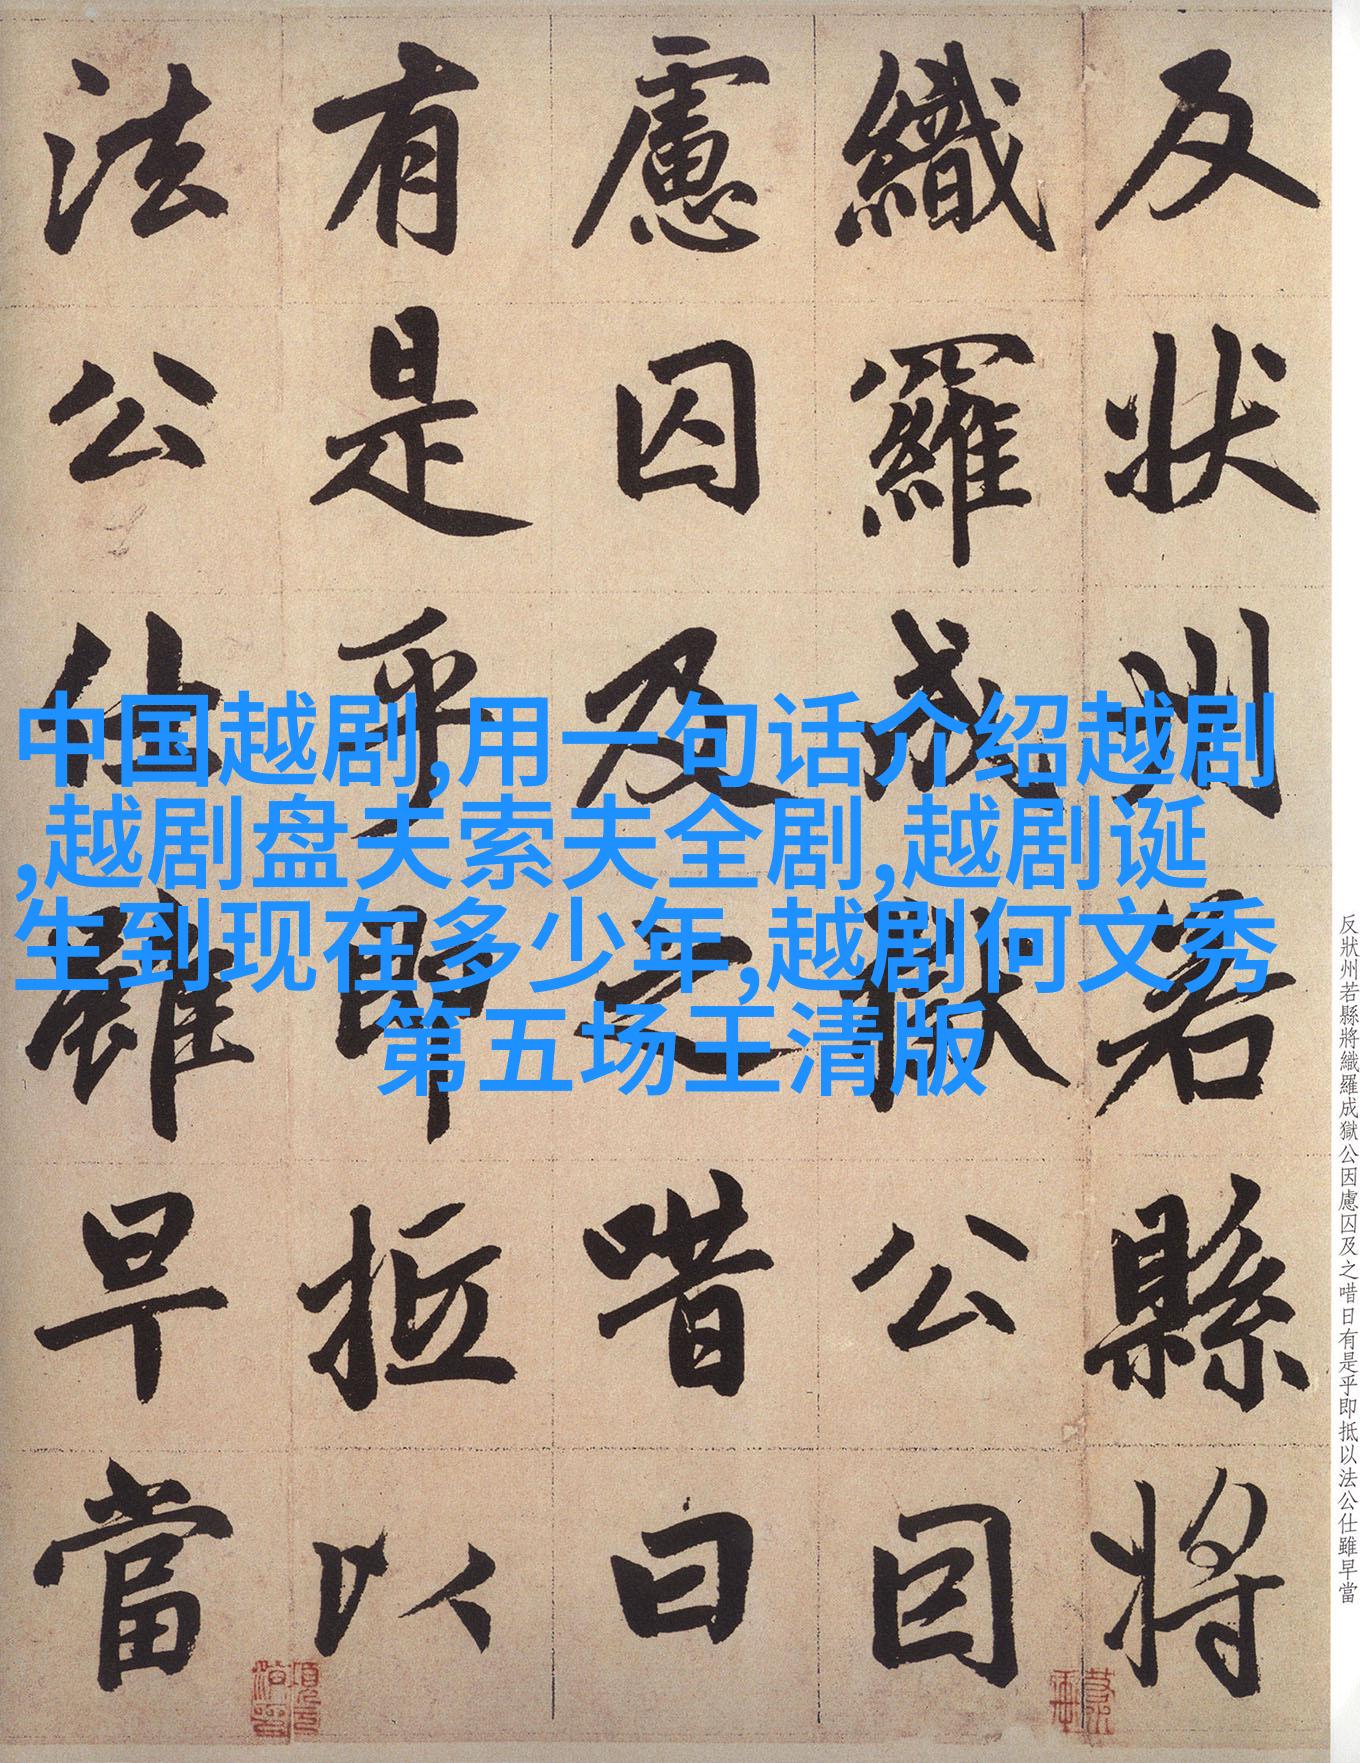 中国越剧,用一句话介绍越剧
,越剧盘夫索夫全剧,越剧诞
生到现在多少年,越剧何文秀
第五场王清版
反状州若縣將
織羅成獄公因
慮囚及之唶曰
有是乎即抵以
法公仕雖早當
反狀州若縣將織羅成獄公因慮囚及之唶日有是乎即抵以法公仕雖早當